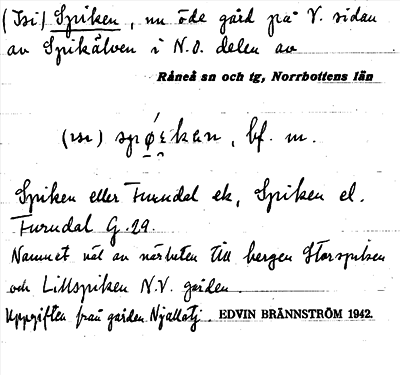 (Isi) Spiken, nu öde gård på V. sidan
av Spikälven i N.O. delen av
Råneå sn och tg, Norrbottens län
bf. m.
Spiken eller Furudal ek, Spiken el.
Furudal G. 29.
Namnet väl av närheten till bergen Storspiken
och Lillspiken N.V. gården.
Uppgiften från gården Njallatj. EDVIN BRÄNNSTRÖM 1942.